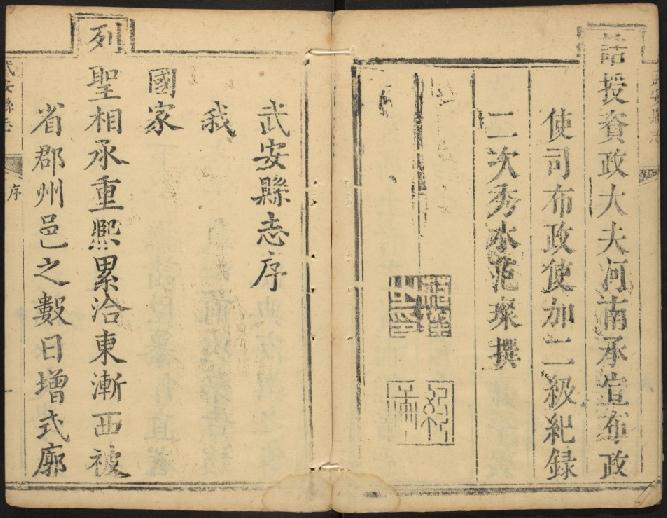 誥授資政大夫河南承宣布政
使司布政使加二級紀錄
二次秀水范璨撰
武安縣志序
我
國家
列
聖相承重熙累洽東漸西被
省郡州邑之數日增式廓
武安縣志
序